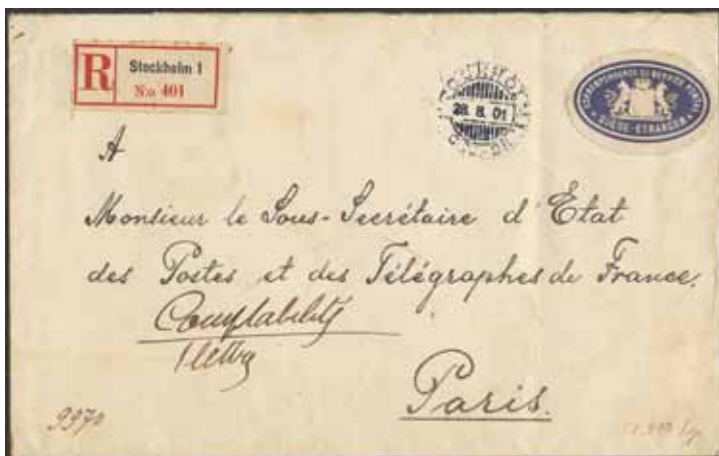 R Stockholm 1
No 401
STOCKHOLM 1
28. 8. 01
CORRESPONDANCE DU SERVICE POSTAL
SUÈDE-ÉTRANGER
A
Monsieur le Sous-Secrétaire d'État
des Postes et des Télégraphes de France.
Comptabilité
Paris.
9970